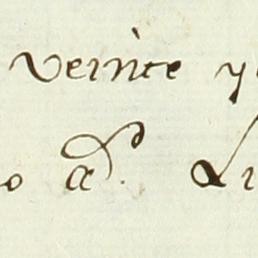 veinte y
o a^d. Li